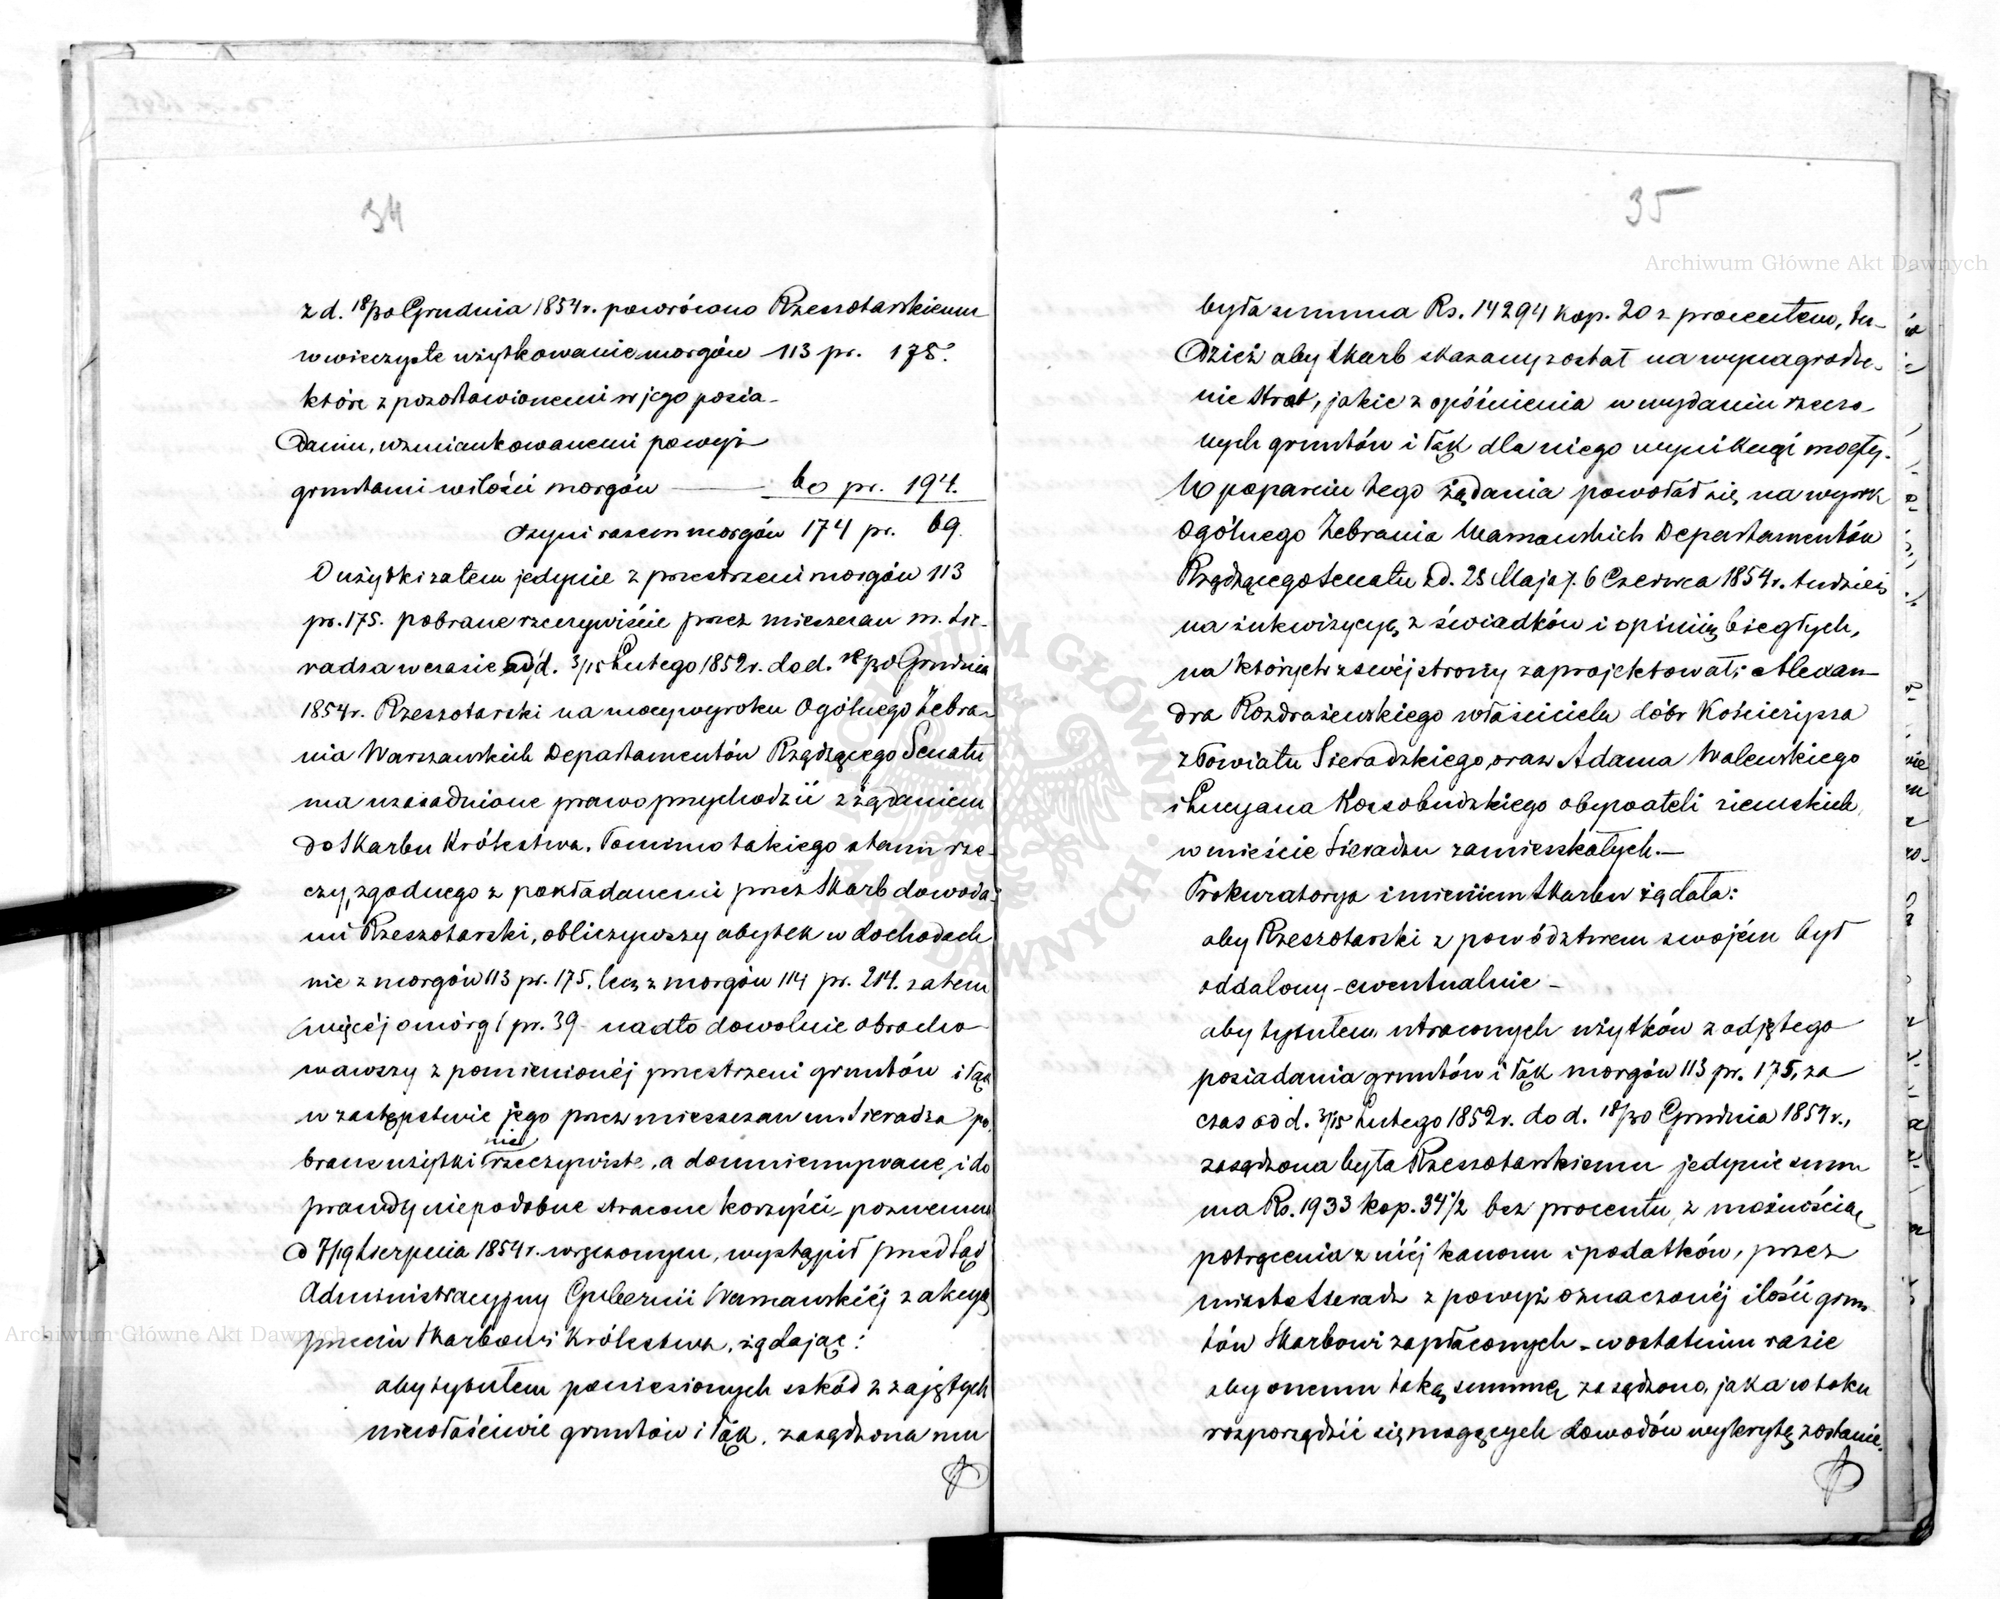 34
z d. 18/30 Grudnia 1854 r. powrócono Rzeszotarskiemu
w wieczyste użytkowanie morgów 113 pr. 175.
które z pozostawionemi w jego posia-
daniu, wzmiankowanemi powyż
gruntami w ilości morgów — 60 pr. 194.
czyni razem morgów 174 pr. 69.
O użytki zatem jedynie z przestrzeni morgów 113
pr. 175. pobrane rzeczywiście przez mieszczan m. Sie-
radza w czasie od d. 3/15 Lutego 1852 r. do d. 18/30 Grudnia
1854 r. Rzeszotarski na mocy wyroku Ogólnego Zebra-
nia Warszawskich Departamentów Rządzącego Senatu
ma uzasadnione prawo przychodzić z żądaniem
do Skarbu Królestwa. Pomimo takiego stanu rze-
czy, zgodnego z pokładanemi przez Skarb dowoda-
mi Rzeszotarski, obliczywszy ubytek w dochodach
nie z morgów 113 pr. 175. lecz z morgów 114 pr. 214. zatem
więcéj o mórg 1 pr. 39. nadto dowolnie obracho-
wawszy z pomienionéj przestrzeni gruntów i łąk
w zastępstwie jego przez mieszczan m. Sieradza po-
brane użytki nie rzeczywiste, a domniemywane, i do
prawdy niepodobne stracone korzyści, pozwem
d 7/19 Sierpnia 1854 r. wręczonym, wystąpił przed Sąd
Administracyjny Gubernii Warszawskiéj z akcyą
przeciw Skarbowi Królestwa, żądając:
aby tytułem poniesionych szkód z zajętych
niewłaściwie gruntów i łąk, zasądzona mu
35
była summa Rs. 14294 kop. 20 z procentem, tu-
dzież aby Skarb skazany został na wynagrodze-
nie strat, jakie z opóźnienia w wydaniu rzeczo-
nych gruntów i łąk dla niego wyniknąć mogły.
W poparciu tego żądania powołał się na wyrok
Ogólnego Zebrania Warszawskich Departamentów
Rządzącego Senatu z d. 25 Maja / 6 Czerwca 1854 r. tudzież
na inkwizycyę z świadków i opinię biegłych,
na których z swéj strony zaprojektował: Alexan-
dra Rozdrażewskiego właściciela dóbr Kościerzyna
z Powiatu Sieradzkiego, oraz Adama Walewskiego
i Lucyana Kossobudzkiego obywateli ziemskich,
w mieście Sieradzu zamieszkałych.—
Prokuratorya imieniem Skarbu żądała:
aby Rzeszotarski z powództwem swojém był
oddalony – ewentualnie –
aby tytułem utraconych użytków z odjętego
posiadania gruntów i łąk morgów 113 pr. 175, za
czas od d. 3/15 Lutego 1852 r. do d. 18/30 Grudnia 1854 r.,
zasądzona była Rzeszotarskiemu jedynie sum
ma Rs. 1933 kop. 34 1/2 bez procentu, z możnością
potrącenia z niéj kanonu i podatków, przez
miasto Sieradz z powyż oznaczonéj ilości grun-
tów Skarbowi zapłaconych – w ostatnim razie
aby onemu taką summę zasądzono, jaka w toku
rozporządzić się mogących dowodów wykrytą zostanie.
Archiwum Główne Akt Dawnych
Archiwum Główne Akt Dawnych
ARCHIWUM GŁÓWNE AKT DAWNYCH